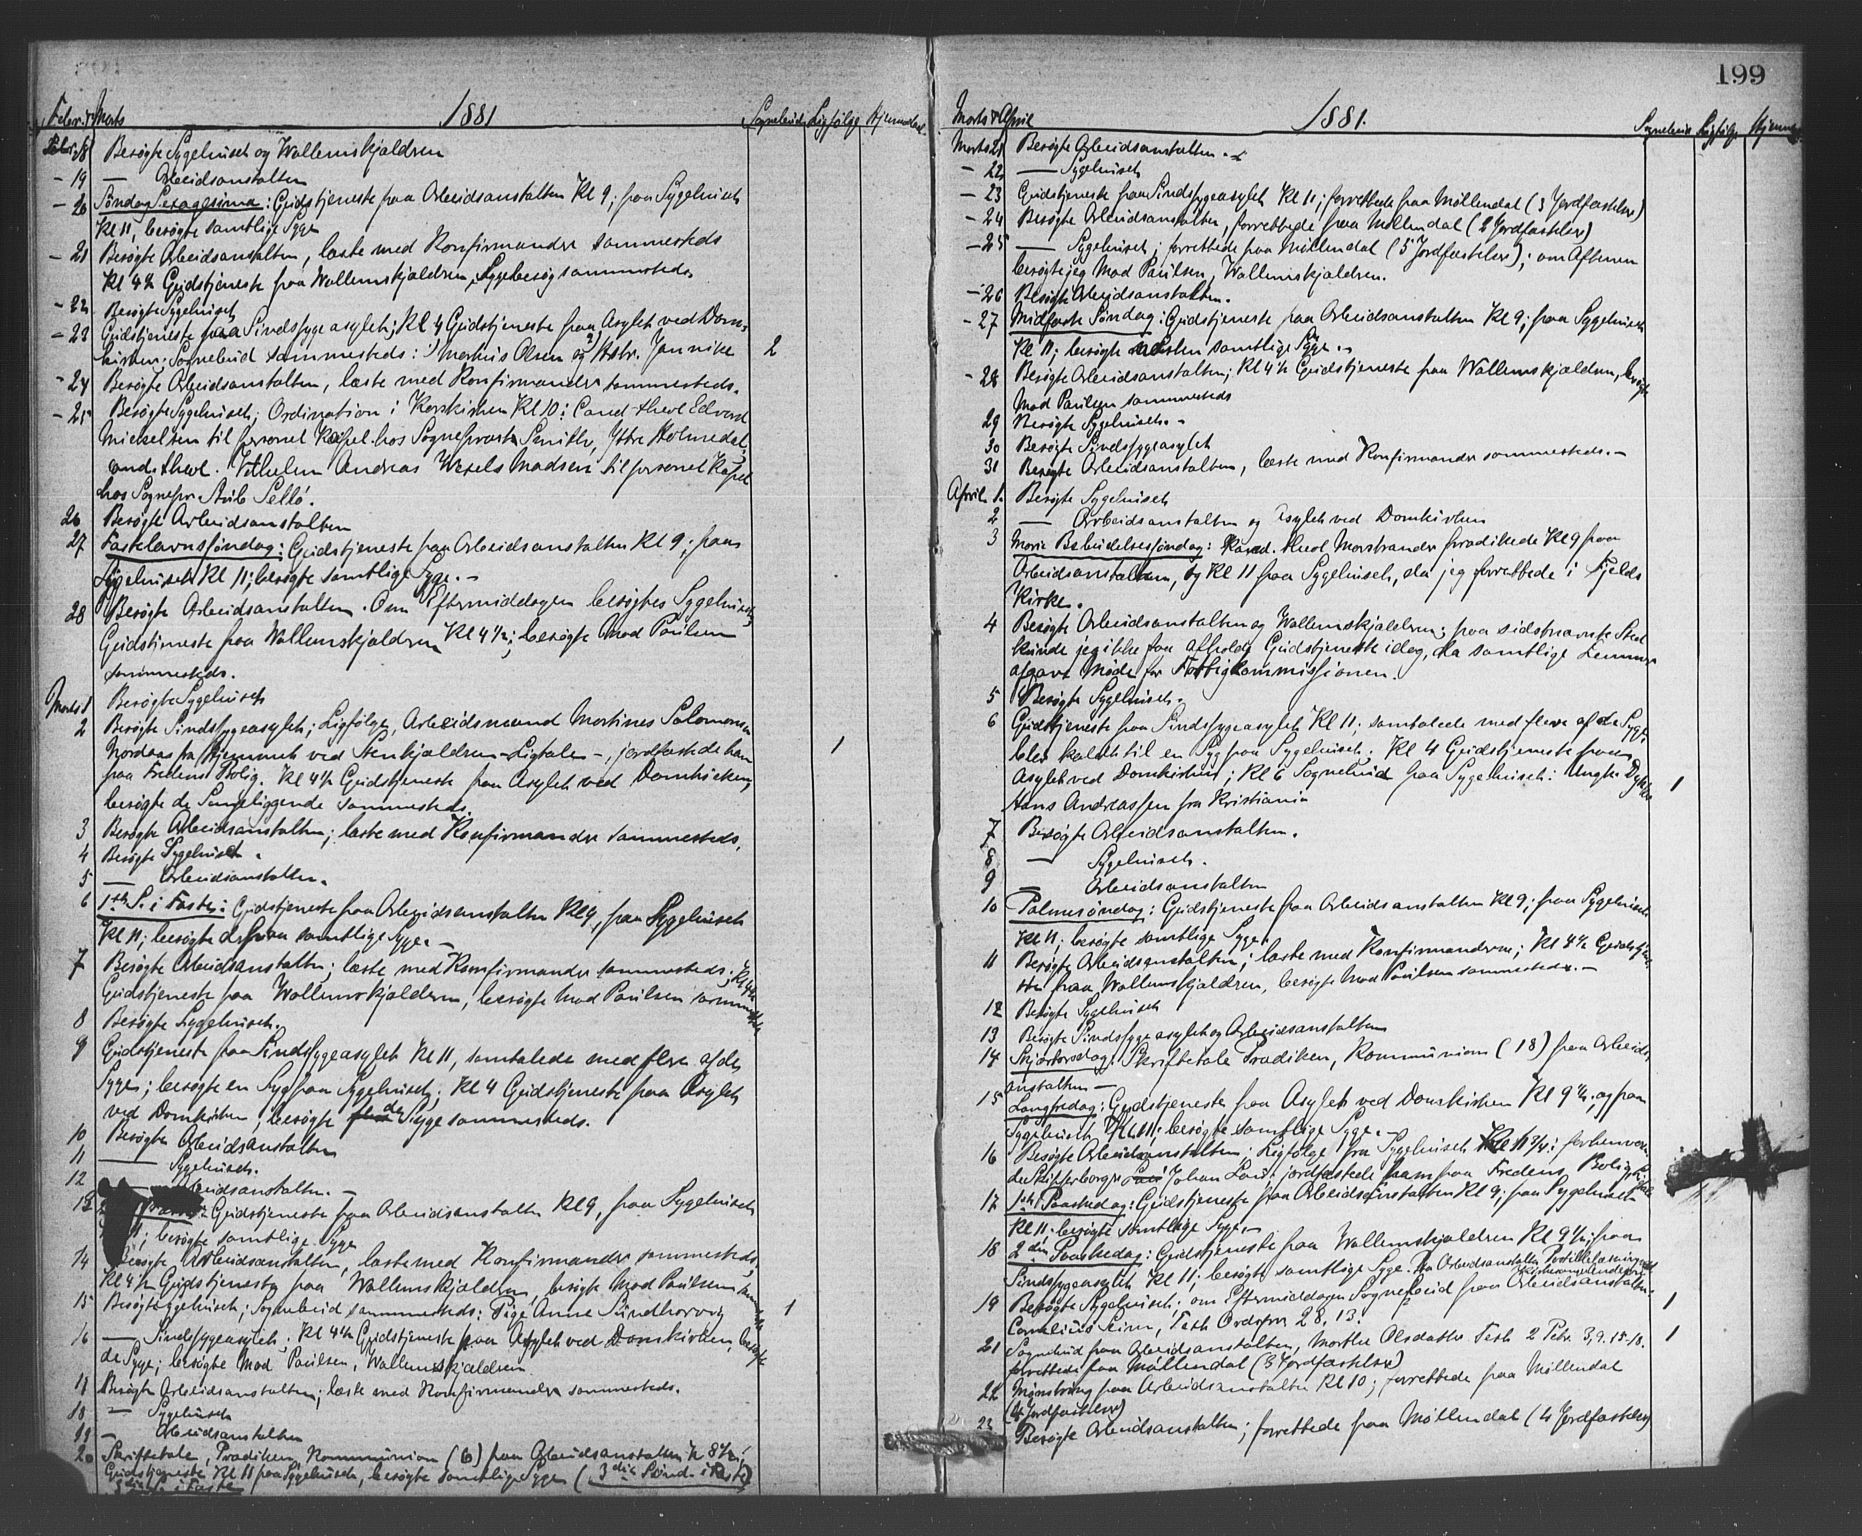 199
Febr. & Marts 1881 Sognebud Ligfølge Hjemmedaab
Febr. 18 Besøgte Sygehuset og Wallemskjældren
- 19 — Arbeidsanstalten
- 20 Søndag Sexagesima: Gudstjeneste paa Arbeidsanstalten Kl 9; paa Sygehuset
Kl 11, besøgte samtlige Syge
- 21 Besøgte Arbeidsanstalten, læste med Konfirmander sammesteds
Kl 4½ Gudstjeneste paa Wallemskjældren, Sygebesøg sammesteds
- 22 Besøgte Sygehuset
- 23 Gudstjeneste paa Sindssygeasylet; Kl 4 Gudstjeneste paa Asylet ved Dom-
kirken; Sognebud sammesteds: 1) Markus Olsen og 2) Jannike 2
- 24 Besøgte Arbeidsanstalten, læste med Konfirmander sammesteds.
- 25 Besøgte Sygehuset; Ordination i Korskirken Kl 10: Cand. theol Edvard
Mickelsen til personel Kapel. hos Sogneprovst Smith, Ytre Holmedal,
cand. theol. Vilhelm Andreas Wexels Madsen til personel Kapel
hos Sognepr. Aub Sellø.
26 Besøgte Arbeidsanstalten
27 Fastelavnssøndag: Gudstjeneste paa Arbeidsanstalten Kl 9; paa
Sygehuset Kl 11; besøgte samtlige Syge. —
28 Besøgte Arbeidsanstalten. Om Eftermiddagen besøgtes Sygehuset,
Gudstjeneste paa Wallemskjældren Kl 4½; besøgte Mad Paulsen
sammesteds.
Marts 1 Besøgte Sygehuset
2 Besøgte Sindssygeasylet; Ligfølge, Arbeidsmand Martines Salomonsen
Nordaas fra Hjemmet ved Stenkjældren — Ligtale —, jordfæstede ham
paa Fredens Bolig. Kl 4½ Gudstjeneste paa Asylet ved Domkirken, 1
besøgte de Sengeliggende sammesteds.
3 Besøgte Arbeidsanstalten; læste med Konfirmander sammesteds.
4 Besøgte Sygehuset.
5 — Arbeidsanstalten.
6 1ste S. i Faste: Gudstjeneste paa Arbeidsanstalten Kl 9, paa Sygehuset
Kl 11; besøgte samtlige Syge. —
7 Besøgte Arbeidsanstalten; læste med Konfirmander sammesteds; Kl 4½
Gudstjeneste paa Wallemskjældren, besøgte Mad Paulsen sammesteds
8 Besøgte Sygehuset.
9 Gudstjeneste paa Sindssygeasylet Kl 11, samtalede med flere af de
Syge; besøgte en Syg paa Sygehuset. Kl 4 Gudstjeneste paa Asylet
ved Domkirken, besøgte de Syge sammesteds.
10 Besøgte Arbeidsanstalten
11 — Sygehuset.
12 Arbeidsanstalten. —
13 Gudstjeneste paa Arbeidsanstalten Kl 9, paa Sygehuset
11; besøgte samtlige Syge
14 Besøgte Arbeidsanstalten, læste med Konfirmander sammesteds;
Kl 4½ Gudstjeneste paa Wallemskjældren, besøgte Mad Paulsen
15 Besøgte Sygehuset; Sognebud sammesteds: Pige Anne 1
16 — Sindssygeasylet. Kl 4½ Gudstjeneste paa Asylet ved Domkirken, besøgte
de Syge; besøgte Mad Paulsen, Wallemskjældren
17 Besøgte Arbeidsanstalten; læste med Konfirmander sammesteds.
18 — Sygehuset
19 — Arbeidsanstalten
20 Skriftetale, Prædiken, Kommunion (6) paa Arbeidsanstalten
Gudstjeneste Kl 11 paa Sygehuset, besøgte samtlige Syge (3die Sønd. i Faste)
3die S. i Faste
Marts & April 1881. Sognebud Ligfølge Hjemmed.
Marts 21 Besøgte Arbeidsanstalten.
- 22 — Sygehuset
- 23 Gudstjeneste paa Sindssygeasylet Kl 11; forrettede paa Møllendal (3 Jordfæstelser)
- 24 Besøgte Arbeidsanstalten, forrettede paa Møllendal (2 Jordfæstelser)
- 25 — Sygehuset; forrettede paa Møllendal (5 Jordfæstelser); om Aftenen
besøgte jeg Mad Paulsen, Wallemskjældren.
- 26 Besøgte Arbeidsanstalten.
- 27 Midfaste Søndag: Gudstjeneste paa Arbeidsanstalten Kl 9; paa Sygehuset
Kl 11; besøgte næsten samtlige Syge. —
- 28 Besøgte Arbeidsanstalten; Kl 4½ Gudstjeneste paa Wallemskjældren, besøgte
Mad Paulsen sammesteds
29 Besøgte Sygehuset. —
30 Besøgte Sindssygeasylet
31 Besøgte Arbeidsanstalten, læste med Konfirmander sammesteds. —
April 1. Besøgte Sygehuset
2 — Arbeidsanstalten og Asylet ved Domkirken
3 Mariæ Bebudelsessøndag: Kand. theol Morstrander prædikede Kl 9 paa
Arbeidsanstalten, og Kl 11 paa Sygehuset, da jeg forrettede i Fjelds
Kirke.
4 Besøgte Arbeidsanstalten og Wallemskjældren; paa sidstnævnte Sted
kunde jeg ikke faa afholdt Gudstjeneste idag, da samtlige Lemmer
afgav Møde for Fattigkommissionen.
5 Besøgte Sygehuset.
6 Gudstjeneste paa Sindssygeasylet Kl 11; samtalede med flere af de Syge;
blev kaldt til en Syg paa Sygehuset. Kl 4 Gudstjeneste paa
Asylet ved Domkirken; Kl 6 Sognebud paa Sygehuset: Ungk. 1
Hans Andreassen fra Kristiania
7 Besøgte Arbeidsanstalten.
8 — Sygehuset.
9 — Arbeidsanstalten
10 Palmesøndag: Gudstjeneste paa Arbeidsanstalten Kl 9; paa Sygehuset
Kl 11; besøgte samtlige Syge.
11 Besøgte Arbeidsanstalten; læste med Konfirmanderne; Kl 4½ Gudstjene-
ste paa Wallemskjældren, besøgte Mad Paulsen sammesteds. —
12 Besøgte Sygehuset
13 Besøgte Sindssygeasylet og Arbeidsanstalten
14 Skjærtorsdag: Skriftetale Prædiken, Kommunion (18) paa Arbeids-
anstalten —
15 Langfredag: Gudstjeneste paa Asylet ved Domkirken Kl 9½, og paa
Sygehuset Kl 11; besøgte samtlige Syge. —
16 Besøgte Arbeidsanstalten; Ligfølge fra Sygehuset Kl 11¾: forhenværen-
de Skipperborger Johan jordfæstede ham paa Fredens Bolig
17 1ste Paaskedag: Gudstjeneste paa Arbeidsanstalten Kl 9; paa Sygehuset
Kl 11. besøgte samtlige Syge. —
18 2den Paaskedag: Gudstjeneste paa Wallemskjældren Kl 9½; paa
Sindssygeasylet Kl 11; besøgte samtlige Syge. Paa Arbeidsanstalten Postillelæsning ved
19 Besøgte Sygehuset; om Eftermiddagen Sognebud paa Arbeidsanstalten. 1
Cornelius Text Ordspr 28, 13.
21 Sognebud paa Arbeidsanstalten, Marthe Olsdatter Text 2 Petr. 3, 9. 15-18. 1
forrettede paa Møllendal (3 Jordfæstelser)
22 Mønstring paa Arbeidsanstalten Kl 10; forrettede paa Møllendal
(4 Jordfæstelser)
23 Besøgte Arbeidsanstalten; forrettede paa Møllendal (4 Jordfæstelser)